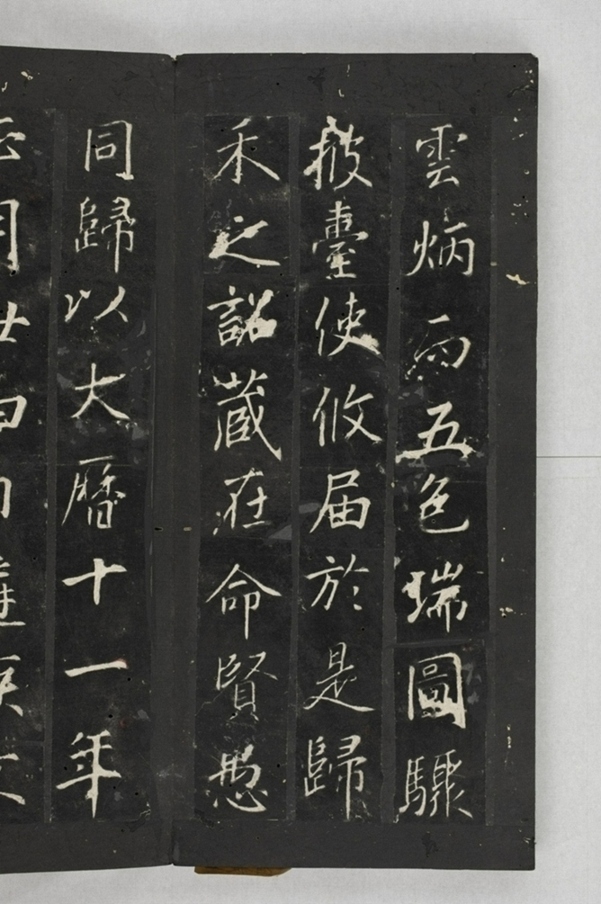 雲炳而五色瑞圖驟
披臺使攸届於是歸
禾之詔蔵在命賢愚
同歸以大曆十一年